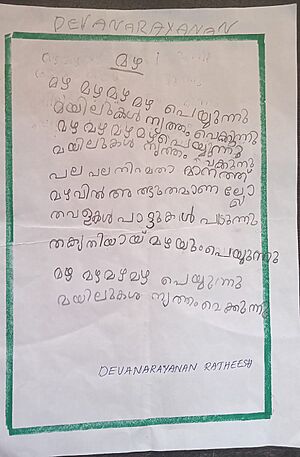 DEVANARAYANAN
മഴ
മഴ മഴമഴമഴ പെയ്യുന്നു
മയിലുകൾ നൃത്തം വെക്കുന്നു
മഴ മഴമഴമഴ പെയ്യുന്നു
മയിലുകൾ നൃത്തം വക്കുന്നു
പല പല നിറമതാ മാനത്ത്
മഴവിൽ അത്ഭുതമാണല്ലോ
തവളകൾ പാട്ടുകൾ പാടുന്നു
മഴയുംപെയ്യുന്നു
മഴ മഴമഴമഴ പെയ്യുന്നു
മയിലുകൾ നൃത്തംവെക്കുന്നു
DEVANARAYANAN RATHEESH